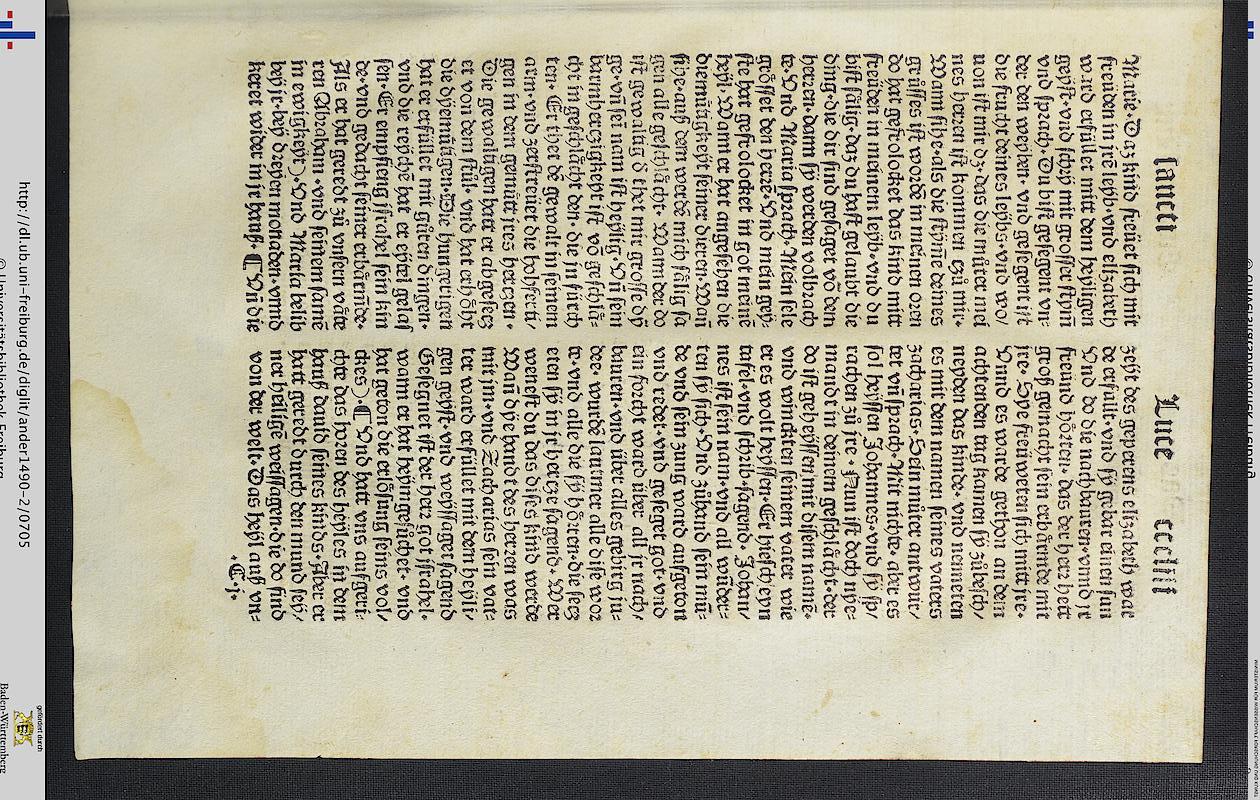 sancti Luce
Marie·Daz kind freüet sich mit
freüden in jrē leyb·vnd elizabeth
ward erfüllet mitt dem heyligen
geyst·vnd schrý mit grosser stÿm̄
vnd sprach·Du bist gesegent vn⸗
der den weyben·vnd gesegent ist
die frucht deines leybs·vnd wo/
uon ist mir dz·das die můter mei
nes herren ist kommen czů mir·
Wann sihe·als die stÿm̄e deines
grůsses ist worde in meinen oren
do hat gefrolocket das kind mitt
freüden in meinem leyb·vnd du
bist sälig·daz du hast gelaubt die
ding·die dir sind gesaget vō dem
herren·dann sÿ werden volbrach
te·Vnd Maria sprach·Mein sele
grösset den herrē·Vnd mein gey⸗
ste hat gefrolocket in got meinē
heyl·Wann er hat angesehen die
diemütigkeyt seiner dieren·Wan̄
sihe·auß dem werdē mich sälig sa
gen alle geschlächt·Wann der do
ist gewaltig d thet mir grosse dy
ge·vn̄ seī nam ist heylig·Vn̄ sein
barmherczigkeyt ist vō geschlä⸗
cht in geschlächt den·die in fürch
ten·Er thet dē gewalt in seinem
arm·vnd zerstreüet die hochferti/
gen in dem gemütt jres herczen·
Die gewaltigen hatt er abgesecz
et von dem stůl·vnd hat erhöht
die dyemütigen·Die hungerigen
hat er erfüllet mit gůten dingen·
vnd die reychē hat er eytel gelas
sen·Er empfieng israhel sein kin
de·vnd gedacht seiner erbärmde·
Als er hat geredt zů vnsern väte
ren Abraham·vnd seinem samē
in ewigkeyt·)Vnd Maria belib
bey jr·bey dreyen monaden·vnnd
keret wider in je hauß·¶Vn̄ die
zeyt des geperens elizabeth war
de erfüllt·vnd sÿ gebar einen sun
Vnd do die nachbauren·vnnd ir
freund hörten·das der herr hett
groß gemacht sein erbärmde mit
jre·Sye freüweten sich mitt jre·
Vnnd es warde gethon an dem
achtenden tag kamen sÿ zůbesch/
neyden das kinde·vnd nenneten
es mit dem namen seines vaters
zacharias·Sein můter antwur/
tet vn̄ sprach·Mit nichte·aber es
sol heyssen Johannes·vnd sÿ sp/
rachen zů jre·Nun ist doch nye⸗
mandt in deinem geschlächt·der
do ist geheyssen mit disem namē·
vnd wincktē seinem vater wie
er es wolt heyssen·Er hiesch eyn
tafel·vnd schrib·sagend·Johan/
nes ist sein nam·vnd all wüder⸗
ten sÿ sich·Vnd zůhand sein mū⸗
de vnd sein zung ward aufgeton
vnd redet·vnd gesegēt got·vnd
ein forcht ward über all jr nach/
bauren·vnd über alles gebirg iu⸗
dee·wurdē lautmer alle dise wor
te·vnd alle die sÿ hörten·die secz
eten sÿ in jr hercze sagend·Wer
wenest du das dises kind werde
Wan̄ dye hand des herren was
mit jm·vnd Zacharias sein vat⸗
ter ward erfüllet mit dem heyli⸗
gen geyst·vnd weyssaget sagend
Gesegnet ist der herr got israhel·
wann er hat heymgesůchet·vnd
hat geton die erlösung seins vol/
ckes·)¶Vnd hatt vns aufgeri⸗
chte das horen des heyles in dem
hauß dauid seines kinds·Aber er
hatt geredt durch den mund sey⸗
ner heilige weissagen·die do sind
von der welt·Das heyl auß vn⸗
·C·j·
http://dl.ub.uni-freiburg.de/diglit/ander1490-2/0705
© Universitätsbibliothek Freiburg
gefördert durch
Baden-Württemberg